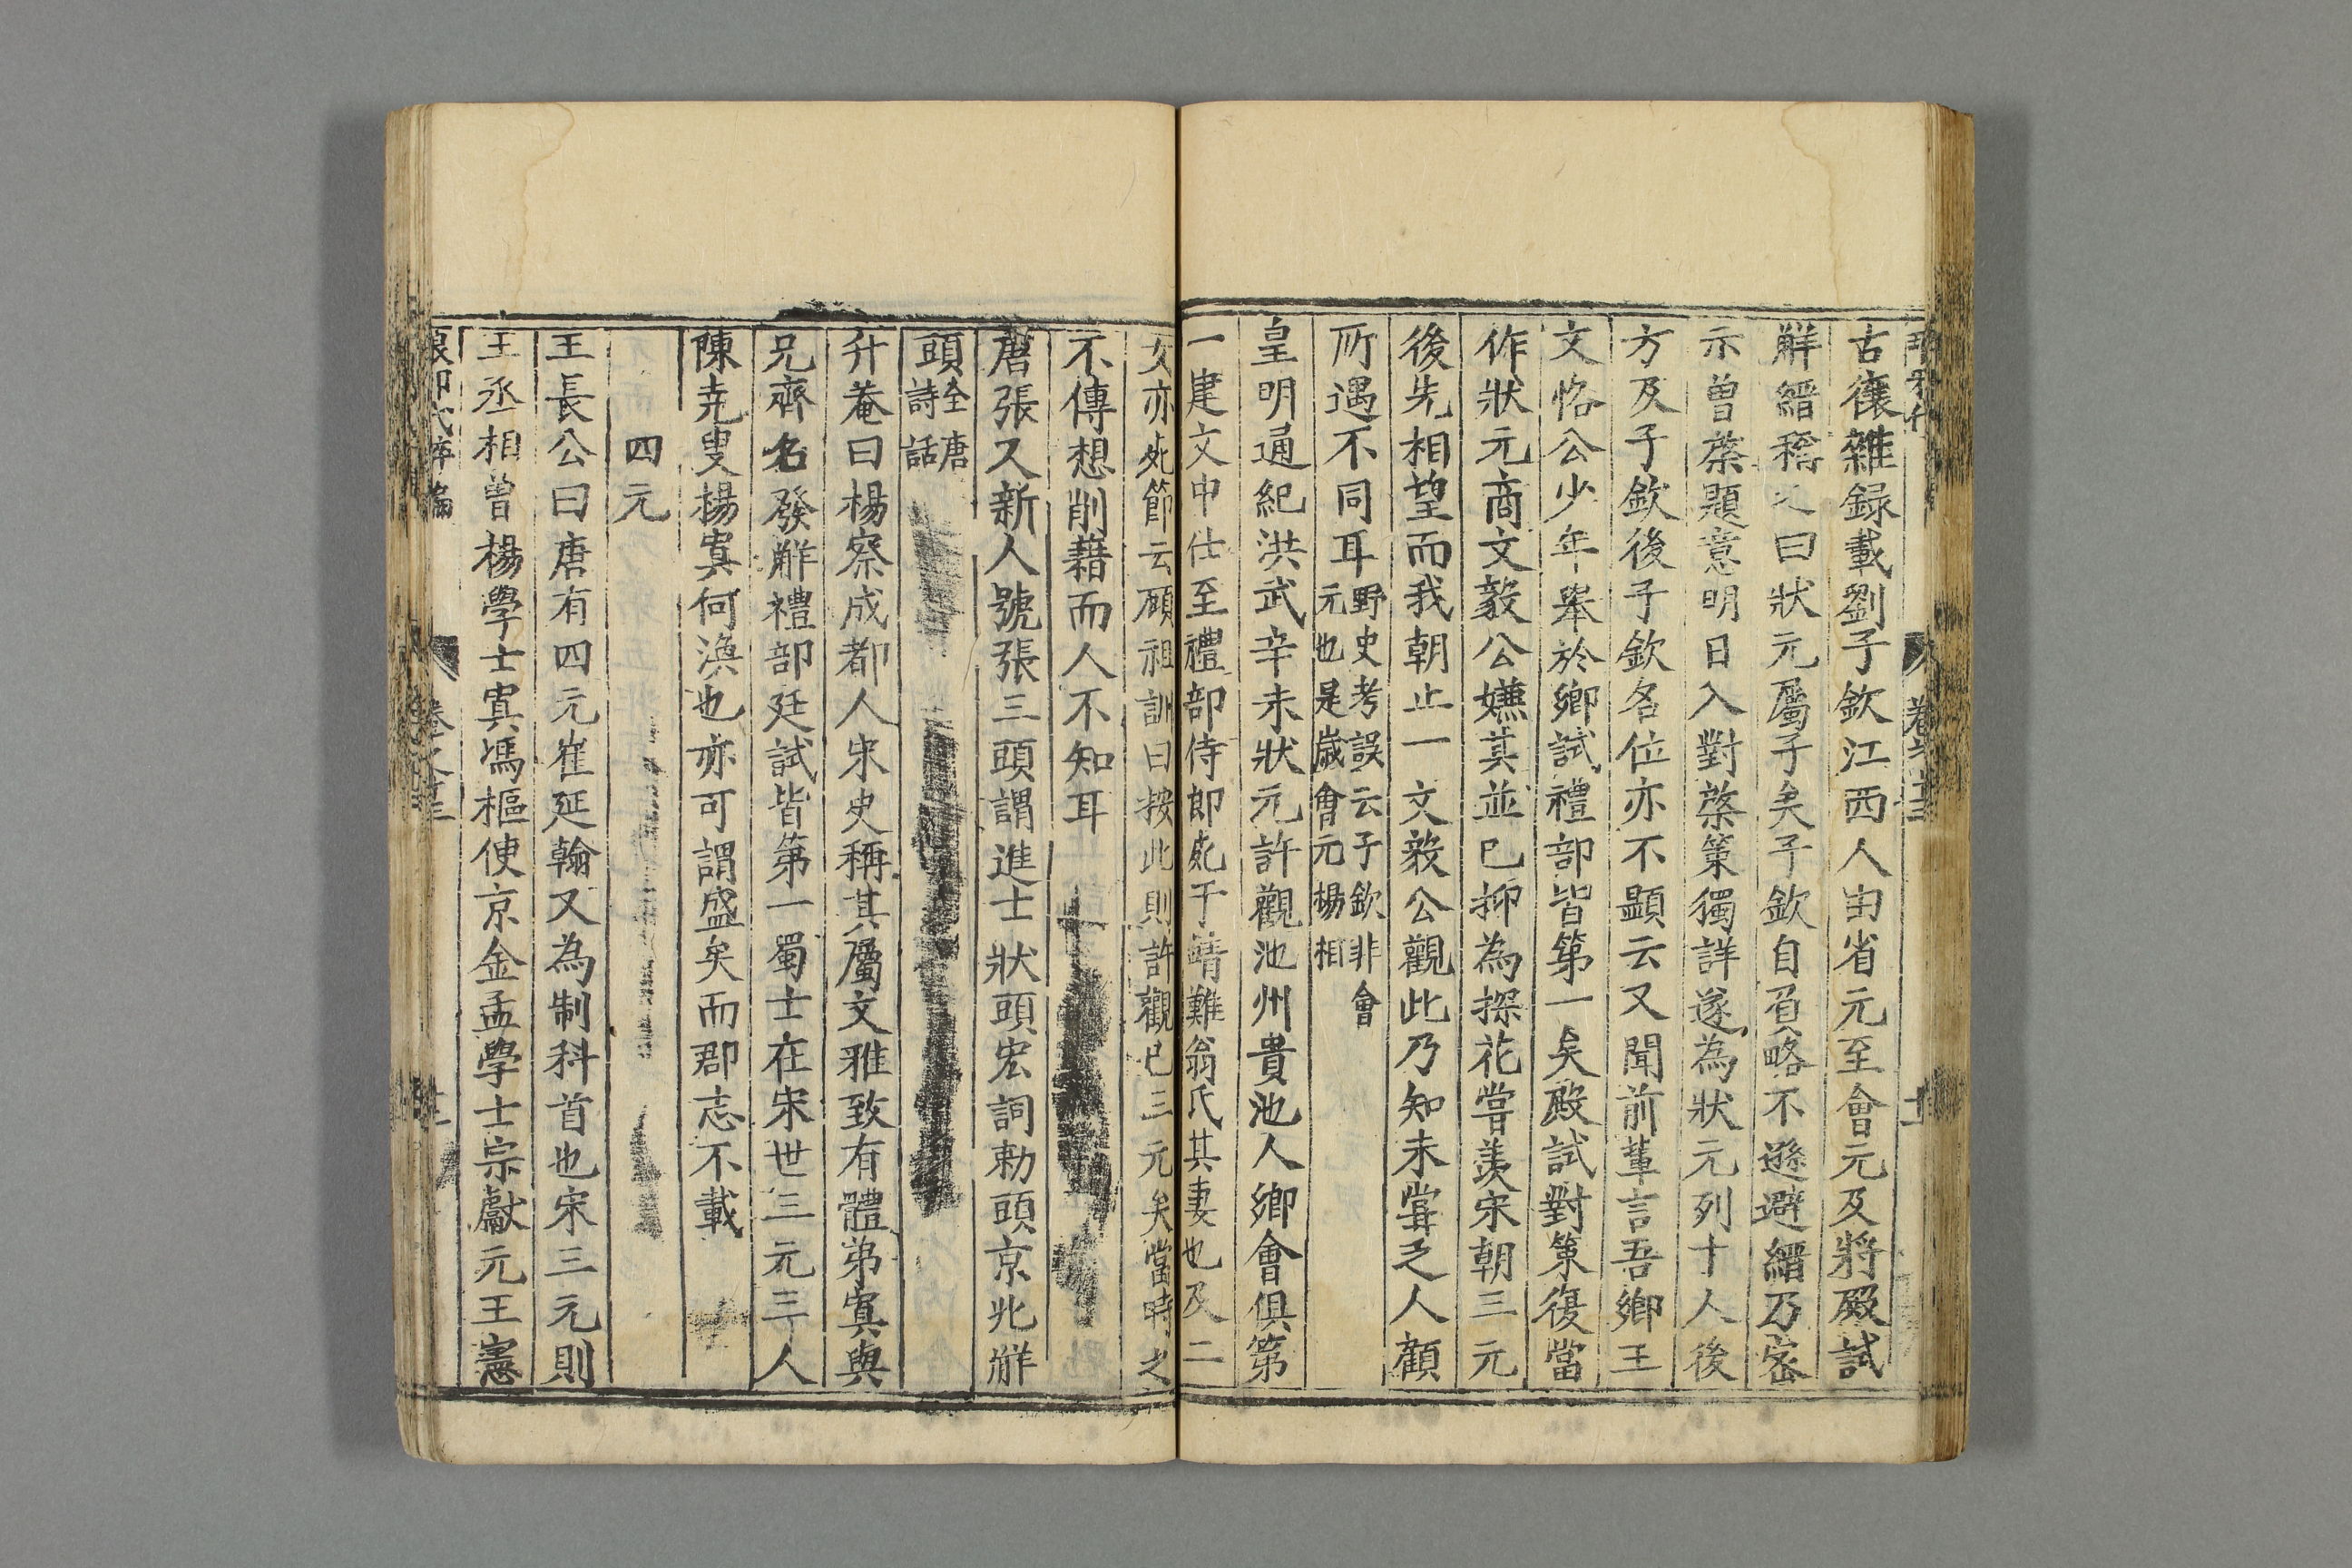 古穰雜録載劉子欽江西人由省元至會元及將殿試
觧縉稱之曰狀元屬子矣子欽自眉略不遜避縉乃密
示曽棨題意明日入對棨策獨詳遂為狀元列十人後
方及子欽後子欽名位亦不顯云又聞前輩言吾鄉王
文恪公少年舉於鄉試禮部皆第一矣殿試對策復當
作狀元商文毅公嫌其並已抑為探花嘗羨宋朝三元
後先相望而我朝止一文毅公觀此乃知未嘗乏人顧
所遇不同耳野史考誤云子欽非會
元也是歲會元楊相
皇明通紀洪武辛未狀元許觀池州貴池人鄉會俱第
一建文中仕至禮部侍郎死于靖難翁氏其妻也及二
女亦死節云顧祖訓曰按此則許觀已三元矣當時之
不傳想削藉而人不知耳
唐張又新人號張三頭謂進士狀頭宏詞勅頭京兆觧
頭全唐
詩話
升菴曰楊察成都人宋史稱其屬文雅致有體弟寘與
兄齊名發觧禮部廷試皆第一蜀士在宋世三元三人
陳尭叟楊寘何渙也亦可謂盛矣而郡志不載
四元
王長公曰唐有四元崔延翰又為制科首也宋三元則
王丞相曾楊學士寘馮樞使京金孟學士宗獻元王憲